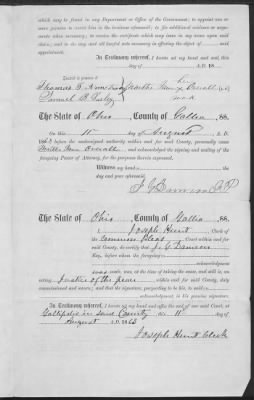 which may be found in any Department or Office of the Government; to appoint one or
more persons to assist him in the business aforesaid; to file additional evidence or arguments
and to receive the certificate which may issue in my name upon said
claim; and to do any and all lawful acts necessary in effecting the object of said
appointment.
In Testimony whereof, I have set my hand and seal, this
day of A.D. 18
Sealed in presence of
Thomas
Samuel R.
her
X
mark
The State of Ohio, County of Gallia SS.
On this 11 day of August A.D.
186 before the undersigned authority within and for said County, personally
came and acknowledged the signing and sealing of the
foregoing Power of Attorney, for the purposes therein expressed.
Witness my hand
the day and year aforesaid.
J. G. Damron J.P.
The State of Ohio, County of Gallia SS.
I Joseph Hunt Clerk of the
Common Pleas Court within and for
said County, do certify that J. G. Damron
Esq., before whom the foregoing
acknowledgment
was made, was, at the time of taking the same, and still is, an
acting Justice of the peace within and for said County, duly
commissioned and sworn; and that the signature, purporting to be his, to said
acknowledgment, is his genuine signature.
In Testimony whereof, I have set my hand and affixed the seal of our said Court, at
Gallipolis in said County this 11 day of
August A.D. 1863
Joseph Hunt Clerk